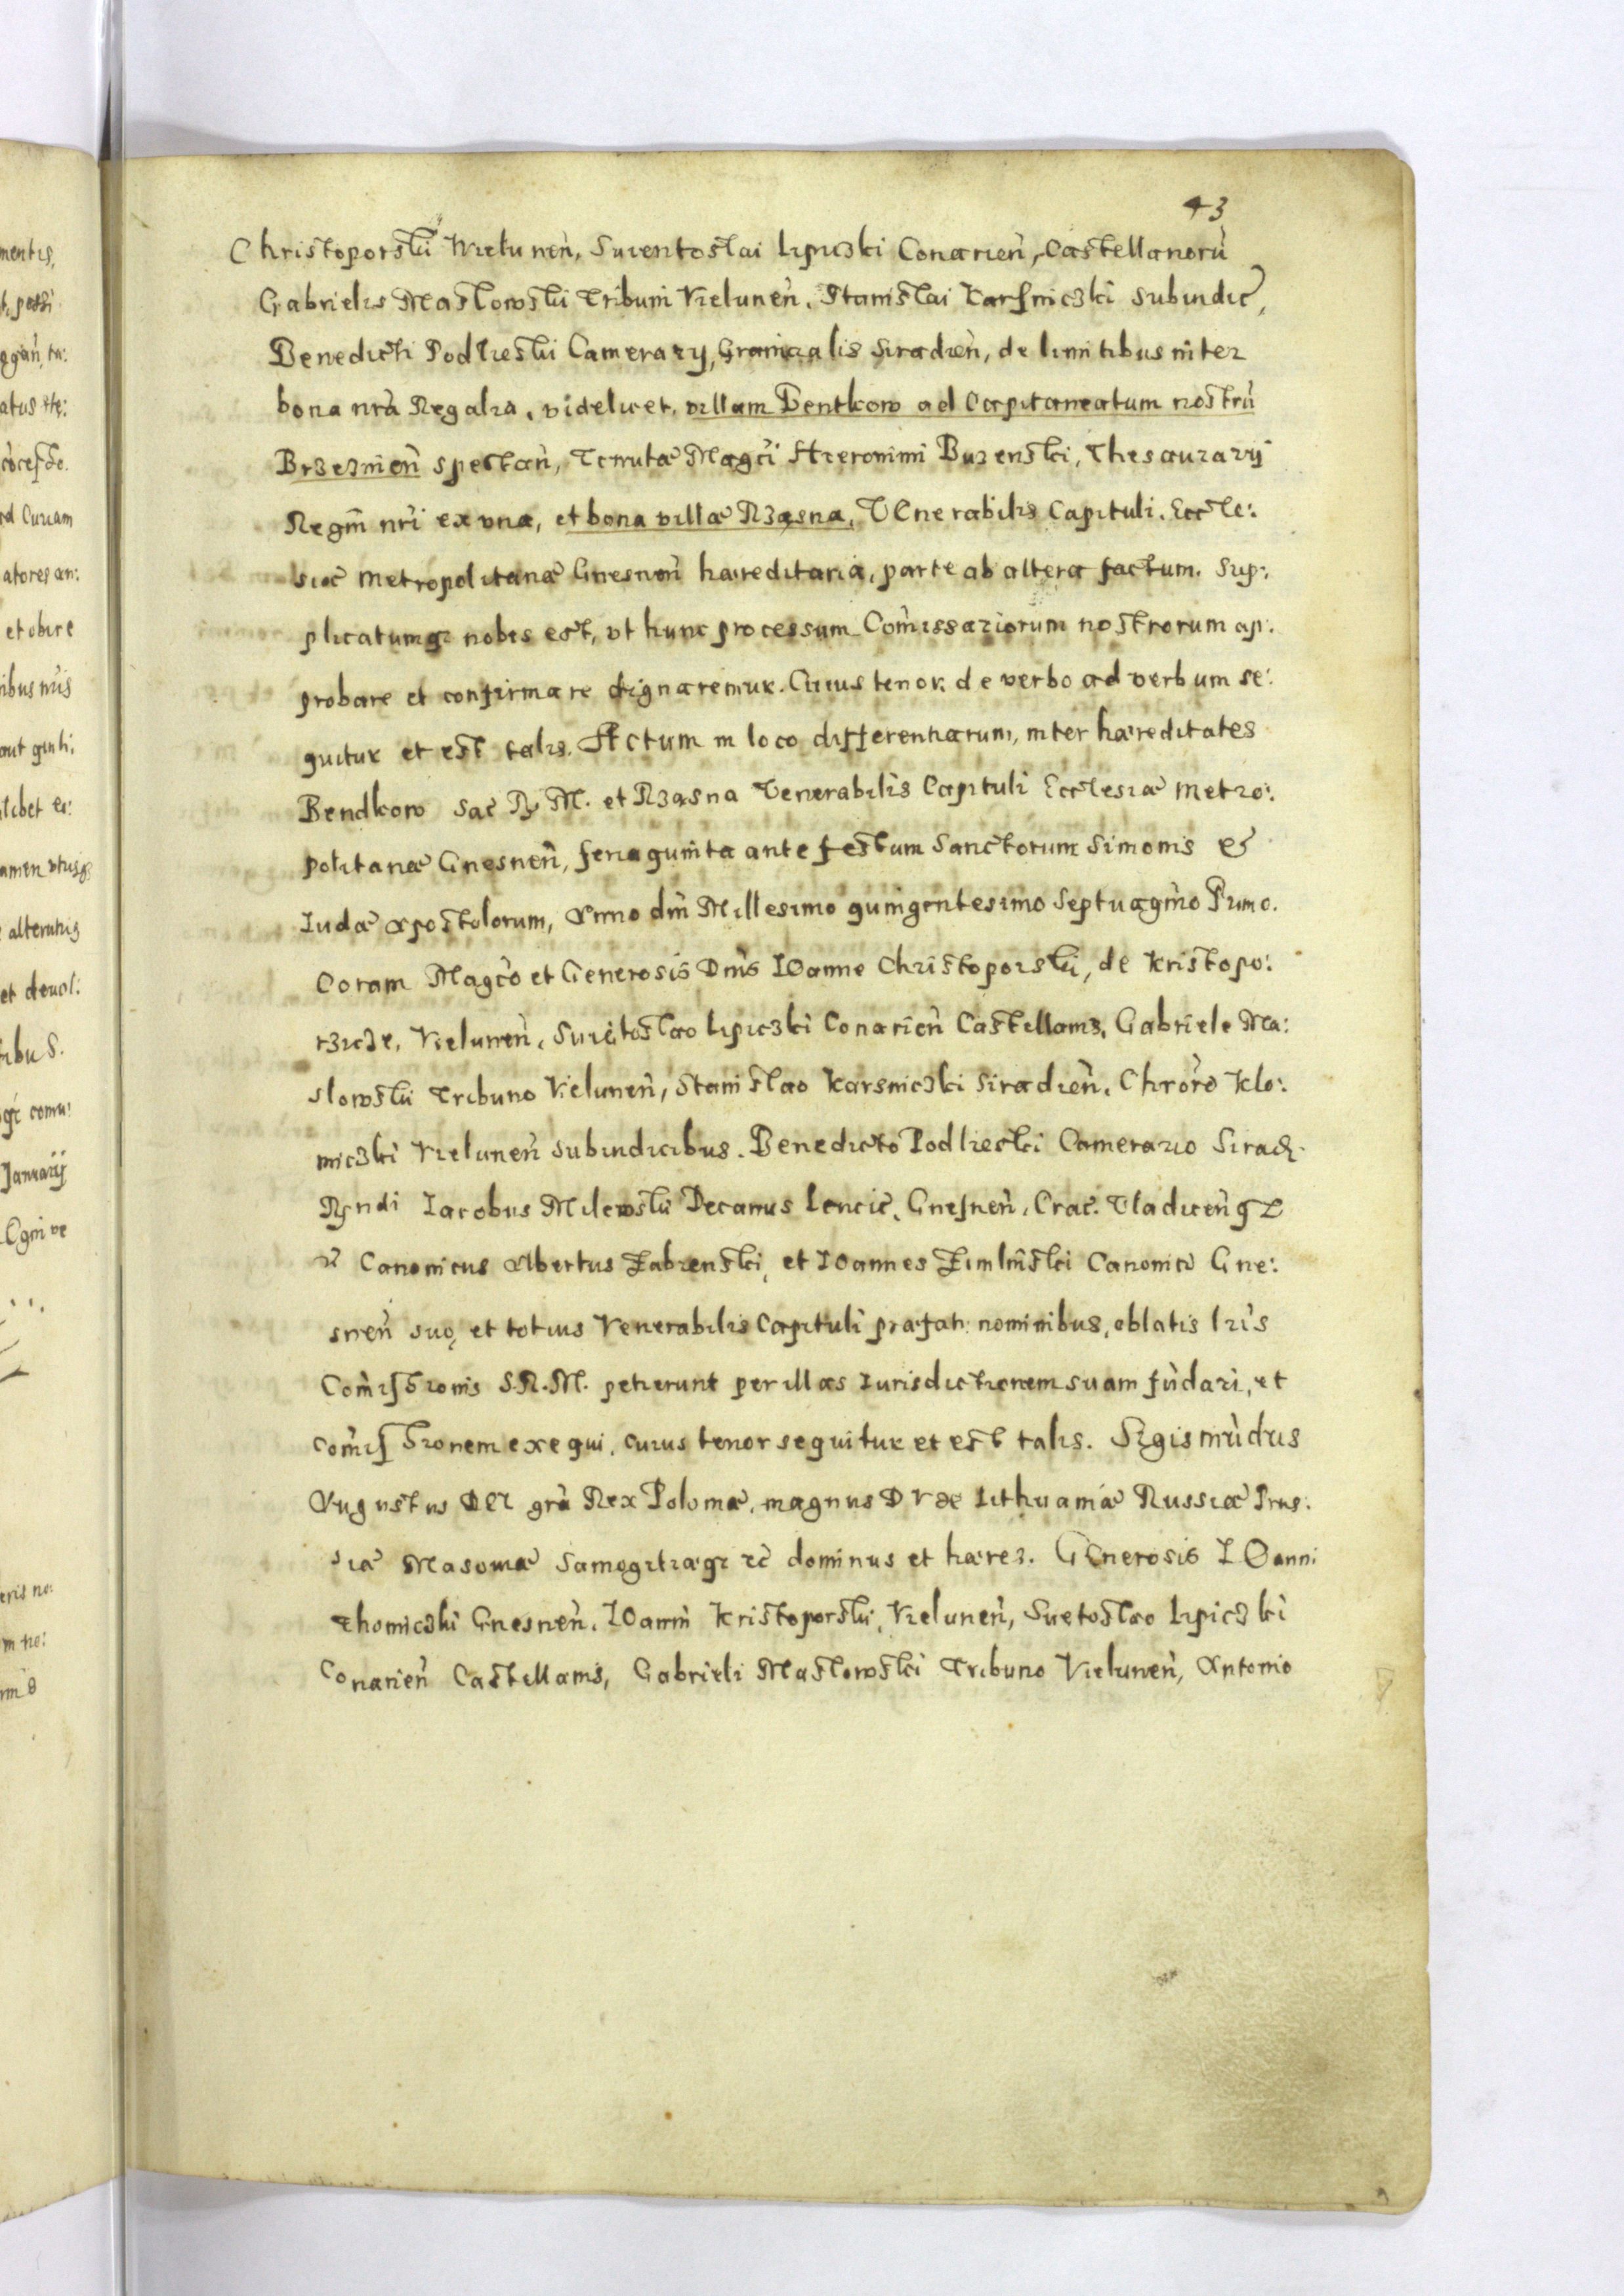 43
Christoporski Wielunen̄, Suientoslai Lipiczki Conarien̄, Castellanorū
Gabrielis Maslowskii Tribuni Vielunen̄. Stanislai Karsniczki Subiudic̄,
Benedicti Podlieskii Camerarij, Granicialis Siradien̄, de limitibus inter
bona nr̄a Regalia, videlicet, villam Bentkow ad Capitaneatum nostrū
Brzeznien̄ spectan̄, Tenutæ Magc̄i Hieronimi Buzenski, Thesaurarij
Regm̄ nr̄i ex vna, et bona villæ Rząsna, Venerabilis Capituli. Eccle:
siæ Metropolitanæ Gnesnen̄ hæreditaria, parte ab altera factum. Sup:
plicatumq̄ nobis est, vt hunc processum Com̄issariorum nostrorum ap:
probare et confirmare dignaremur. Cuius tenor de verbo ad verbum se:
quitur et est talis. Actum in loco differentiarum, inter hæreditates
Bendkow Sac R M. et Rząsna Venerabilis Capituli Ecclesiæ Metro:
politanæ Gnesnen̄, feria quinta ante festum Sanctorum Simonis &
Iudæ Apostolorum, Anno dn̄i Millesimo quingentesimo Septuagm̄o Primo.
Coram Magc̄o et Generosis Dn̄is Ioanne Christoporskii, de Kristopo:
rzicze, Vielunen̄, Suiētoslao Lipiczki Conarien̄ Castellanis, Gabriele Ma:
slowskii Tribuno Vielunen̄, Stanislao Karsniczki Siradien̄. Chrōro Klo:
miczki Vielunen̄ Subiudicibus. Benedicto Podlieski Camerario Sirad.
Rndi Iacobus Milewskii Decanus Lencic̄, Gnesnen̄, Crac̄. Vladicen̄ q̄
Canonicus Albertus Zabienski, et Ioannes Canonici Gne:
snen̄ suo, et totius Venerabilis Capituli præfati nominibus, oblatis lr̄is
Com̄issionis S.R.M. petierunt per illas Iurisdictionem suam fūdari, et
com̄issionem exequi, cuius tenor sequitur et est talis. Sigismūdus
Augustus DEI gr̄a Rex Poloniæ, magnus Dux Lithuaniæ Russiæ Prus:
siæ Masouiæ Samogitiæq̄ ec̄ dominus et hærez. GEnerosis IOanni
Thomiczki Gnesnen̄. IOanni Kristoporskii, Vielunen̄, Suetoslao Lipiczki
Conarien̄ Castellanis, Gabrieli Maslowski Tribuno Vielunen̄, Antonio